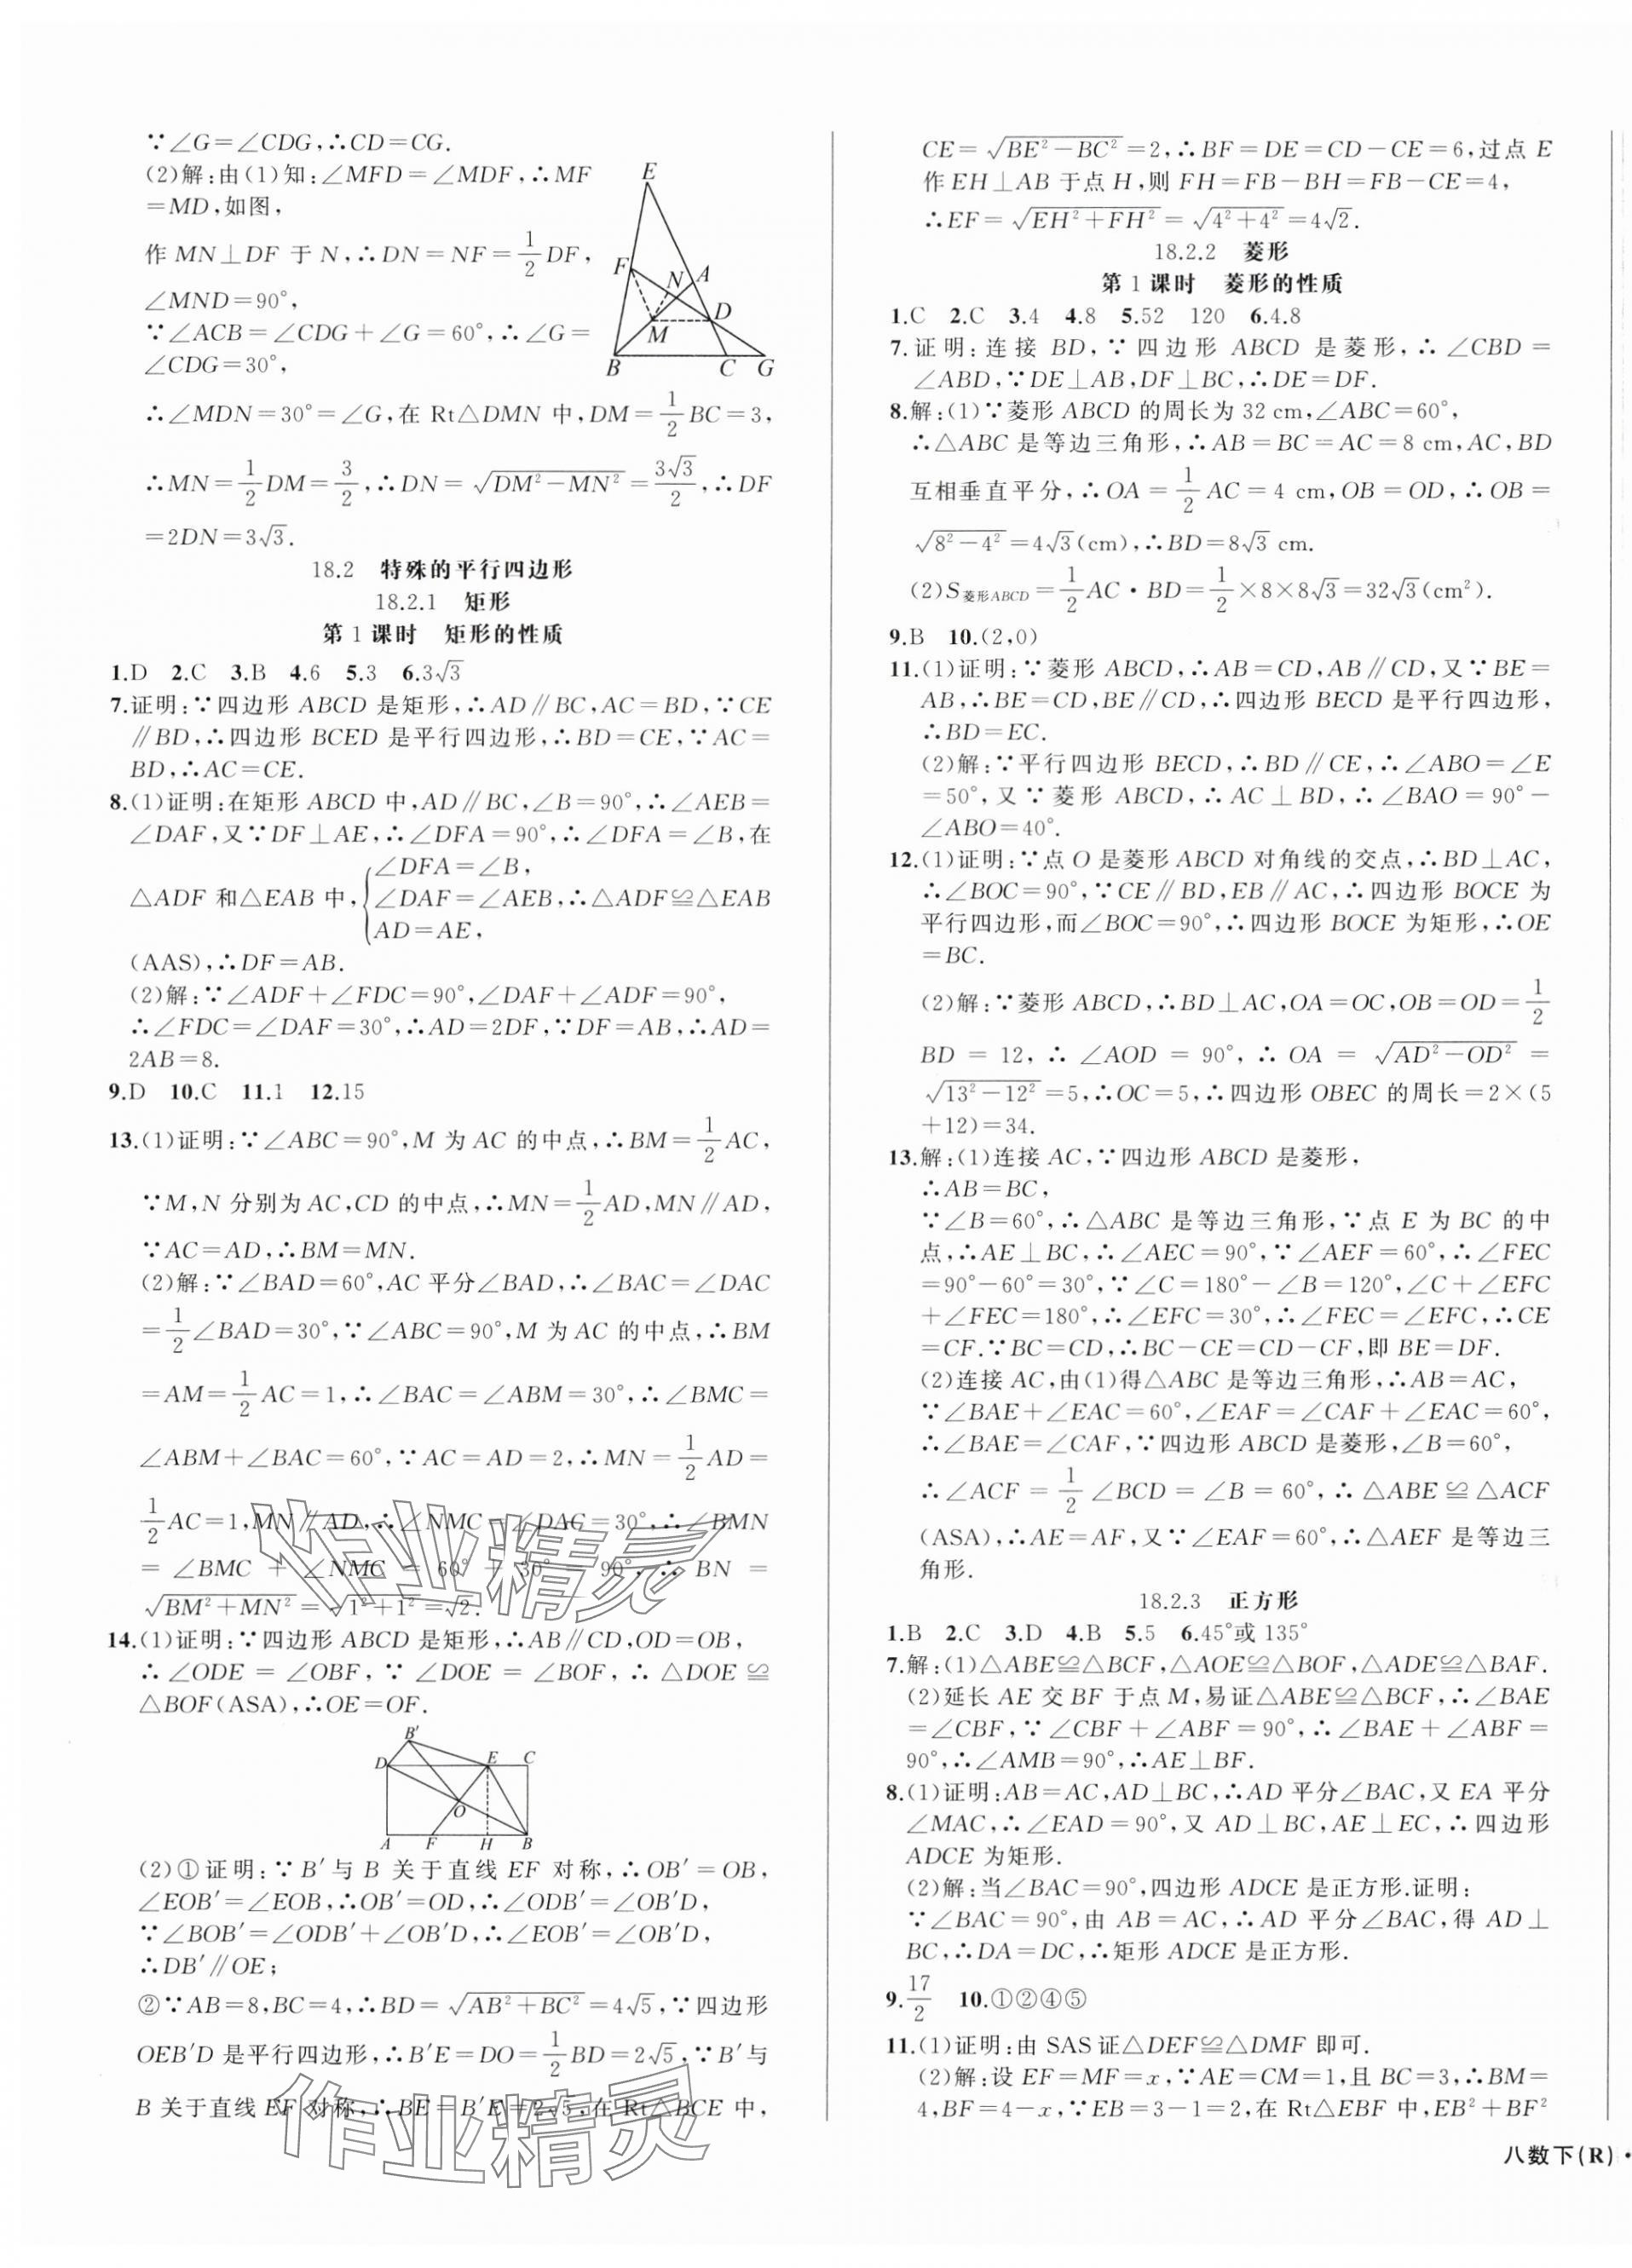 ∵∠G=∠CDG,∴CD=CG.
(2)解:由(1)知:∠MFD=∠MDF,∴MF
=MD,如图,
作MN⊥DF于N,∴DN=NF=1/2 DF,
∠MND=90°,
∵∠ACB=∠CDG+∠G=60°,∴∠G=
∠CDG=30°,
E
F
N
A
D
M
B
C
G
∴∠MDN=30°=∠G,在Rt△DMN中,DM=1/2 BC=3,
∴MN=1/2 DM=3/2,∴DN=√(DM²-MN²)=3√3/2,∴DF
=2DN=3√3.
18.2 特殊的平行四边形
18.2.1 矩形
第1课时 矩形的性质
1.D 2.C 3.B 4.6 5.3 6.3√3
7.证明:∵四边形ABCD是矩形,∴AD∥BC,AC=BD,∵CE
∥BD,∴四边形BCED是平行四边形,∴BD=CE,∵AC=
BD,∴AC=CE.
8.(1)证明:在矩形ABCD中,AD∥BC,∠B=90°,∴∠AEB=
∠DAF,又∵DF⊥AE,∴∠DFA=90°,∴∠DFA=∠B,在
∠DFA=∠B,
△ADF和△EAB中,{∠DAF=∠AEB,∴△ADF≌△EAB
AD=AE,
(AAS),∴DF=AB.
(2)解:∵∠ADF+∠FDC=90°,∠DAF+∠ADF=90°,
∴∠FDC=∠DAF=30°,∴AD=2DF,∵DF=AB,∴AD=
2AB=8.
9.D 10.C 11.1 12.15
13.(1)证明:∵∠ABC=90°,M为AC的中点,∴BM=1/2 AC,
∵M,N分别为AC,CD的中点,∴MN=1/2 AD,MN∥AD,
∵AC=AD,∴BM=MN.
(2)解:∵∠BAD=60°,AC平分∠BAD,∴∠BAC=∠DAC
=1/2∠BAD=30°,∵∠ABC=90°,M为AC的中点,∴BM
=AM=1/2 AC=1,∴∠BAC=∠ABM=30°,∴∠BMC=
∠ABM+∠BAC=60°,∵AC=AD=2,∴MN=1/2 AD=
1/2 AC=1,MN∥AD,∴∠NMC=∠DAC=30°,∴∠BMN
=∠BMC+∠NMC=60°+30°=90°,∴BN=
√(BM²+MN²)=√(1²+1²)=√2.
14.(1)证明:∵四边形ABCD是矩形,∴AB∥CD,OD=OB,
∴∠ODE=∠OBF,∵∠DOE=∠BOF,∴△DOE≌
△BOF(ASA),∴OE=OF.
B′
D
E
C
O
A
F
H
B
(2)①证明:∵B′与B关于直线EF对称,∴OB′=OB,
∠EOB′=∠EOB,∴OB′=OD,∴∠ODB′=∠OB′D,
∵∠BOB′=∠ODB′+∠OB′D,∴∠EOB′=∠OB′D,
∴DB′∥OE;
②∵AB=8,BC=4,∴BD=√(AB²+BC²)=4√5,∵四边形
OEB′D是平行四边形,∴B′E=DO=1/2 BD=2√5,∵B′与
B关于直线EF对称,∴BE=B′E=2√5,在Rt△BCE中,
CE=√(BE²-BC²)=2,∴BF=DE=CD-CE=6,过点E
作EH⊥AB于点H,则FH=FB-BH=FB-CE=4,
∴EF=√(EH²+FH²)=√(4²+4²)=4√2.
18.2.2 菱形
第1课时 菱形的性质
1.C 2.C 3.4 4.8 5.52 120 6.4.8
7.证明:连接BD,∵四边形ABCD是菱形,∴∠CBD=
∠ABD,∵DE⊥AB,DF⊥BC,∴DE=DF.
8.解:(1)∵菱形ABCD的周长为32 cm,∠ABC=60°,
∴△ABC是等边三角形,∴AB=BC=AC=8 cm,AC,BD
互相垂直平分,∴OA=1/2 AC=4 cm,OB=OD,∴OB=
√(8²-4²)=4√3(cm),∴BD=8√3 cm.
(2)S菱形ABCD=1/2 AC·BD=1/2×8×8√3=32√3(cm²).
9.B 10.(2,0)
11.(1)证明:∵菱形ABCD,∴AB=CD,AB∥CD,又∵BE=
AB,∴BE=CD,BE∥CD,∴四边形BECD是平行四边形,
∴BD=EC.
(2)解:∵平行四边形BECD,∴BD∥CE,∴∠ABO=∠E
=50°,又∵菱形ABCD,∴AC⊥BD,∴∠BAO=90°-
∠ABO=40°.
12.(1)证明:∵点O是菱形ABCD对角线的交点,∴BD⊥AC,
∴∠BOC=90°,∵CE∥BD,EB∥AC,∴四边形BOCE为
平行四边形,而∠BOC=90°,∴四边形BOCE为矩形,∴OE
=BC.
(2)解:∵菱形ABCD,∴BD⊥AC,OA=OC,OB=OD=1/2
BD=12,∴∠AOD=90°,∴OA=√(AD²-OD²)=
√(13²-12²)=5,∴OC=5,∴四边形OBEC的周长=2×(5
+12)=34.
13.解:(1)连接AC,∵四边形ABCD是菱形,
∴AB=BC,
∵∠B=60°,∴△ABC是等边三角形,∵点E为BC的中
点,∴AE⊥BC,∴∠AEC=90°,∵∠AEF=60°,∴∠FEC
=90°-60°=30°,∵∠C=180°-∠B=120°,∠C+∠EFC
+∠FEC=180°,∴∠EFC=30°,∴∠FEC=∠EFC,∴CE
=CF.∵BC=CD,∴BC-CE=CD-CF,即BE=DF.
(2)连接AC,由(1)得△ABC是等边三角形,∴AB=AC,
∵∠BAE+∠EAC=60°,∠EAF=∠CAF+∠EAC=60°,
∴∠BAE=∠CAF,∵四边形ABCD是菱形,∠B=60°,
∴∠ACF=1/2∠BCD=∠B=60°,∴△ABE≌△ACF
(ASA),∴AE=AF,又∵∠EAF=60°,∴△AEF是等边三
角形.
18.2.3 正方形
1.B 2.C 3.D 4.B 5.5 6.45°或135°
7.解:(1)△ABE≌△BCF,△AOE≌△BOF,△ADE≌△BAF.
(2)延长AE交BF于点M,易证△ABE≌△BCF,∴∠BAE
=∠CBF,∵∠CBF+∠ABF=90°,∴∠BAE+∠ABF=
90°,∴∠AMB=90°,∴AE⊥BF.
8.(1)证明:AB=AC,AD⊥BC,∴AD平分∠BAC,又EA平分
∠MAC,∴∠EAD=90°,又AD⊥BC,AE⊥EC,∴四边形
ADCE为矩形.
(2)解:当∠BAC=90°,四边形ADCE是正方形.证明:
∵∠BAC=90°,由AB=AC,∴AD平分∠BAC,得AD⊥
BC,∴DA=DC,∴矩形ADCE是正方形.
9.17/2 10.①②④⑤
11.(1)证明:由SAS证△DEF≌△DMF即可.
(2)解:设EF=MF=x,∵AE=CM=1,且BC=3,∴BM=
4,BF=4-x,∵EB=3-1=2,在Rt△EBF中,EB²+BF²
八数下(R)·
作业精灵
作业精灵